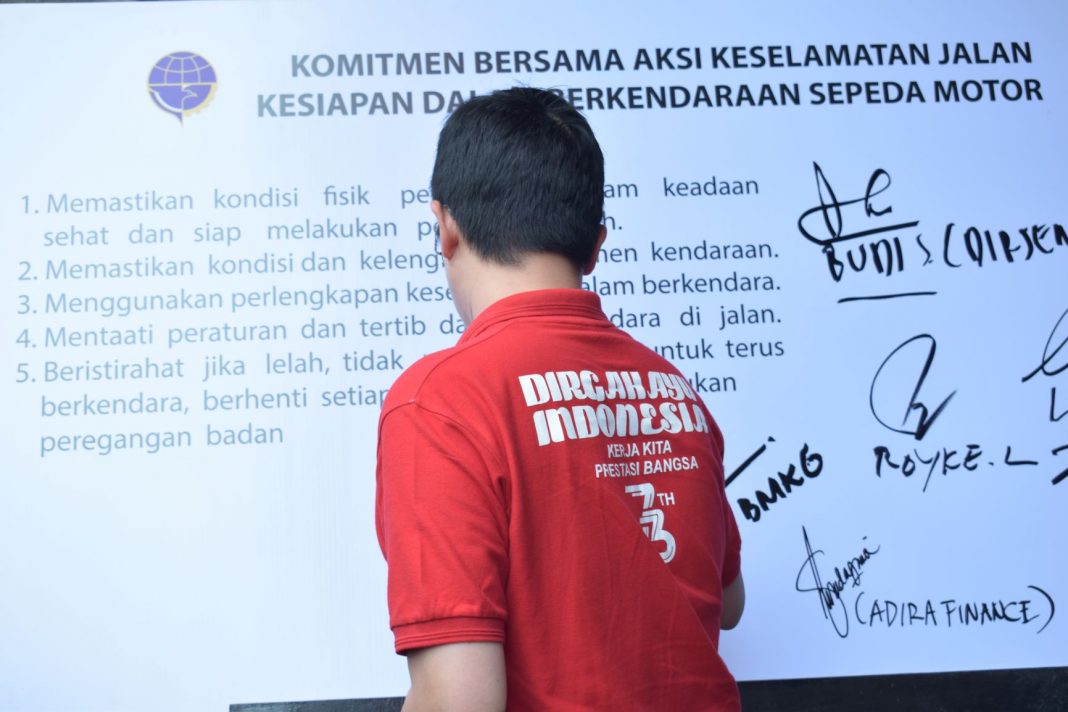 KOMITMEN BERSAMA AKSI KESELAMATAN JALAN
KESIAPAN DA ERKENDARAAN SEPEDA MOTOR
1. Memastikan kondisi fisik pe am keadaan
sehat dan siap melakukan pe h.
2. Memastikan kondisi dan keleng men kendaraan.
3. Menggunakan perlengkapan kese alam berkendara.
4. Mentaati peraturan dan tertib da dara di jalan.
5. Beristirahat jika lelah, tidak untuk terus
berkendara, berhenti setiap ukan
peregangan badan
BUDI S. (DIRJEN
ROYKE. L
BMKG
(ADIRA FINANCE)
DIRGAHAYU
INDONESIA
KERJA KITA
PRESTASI BANGSA
73 TH